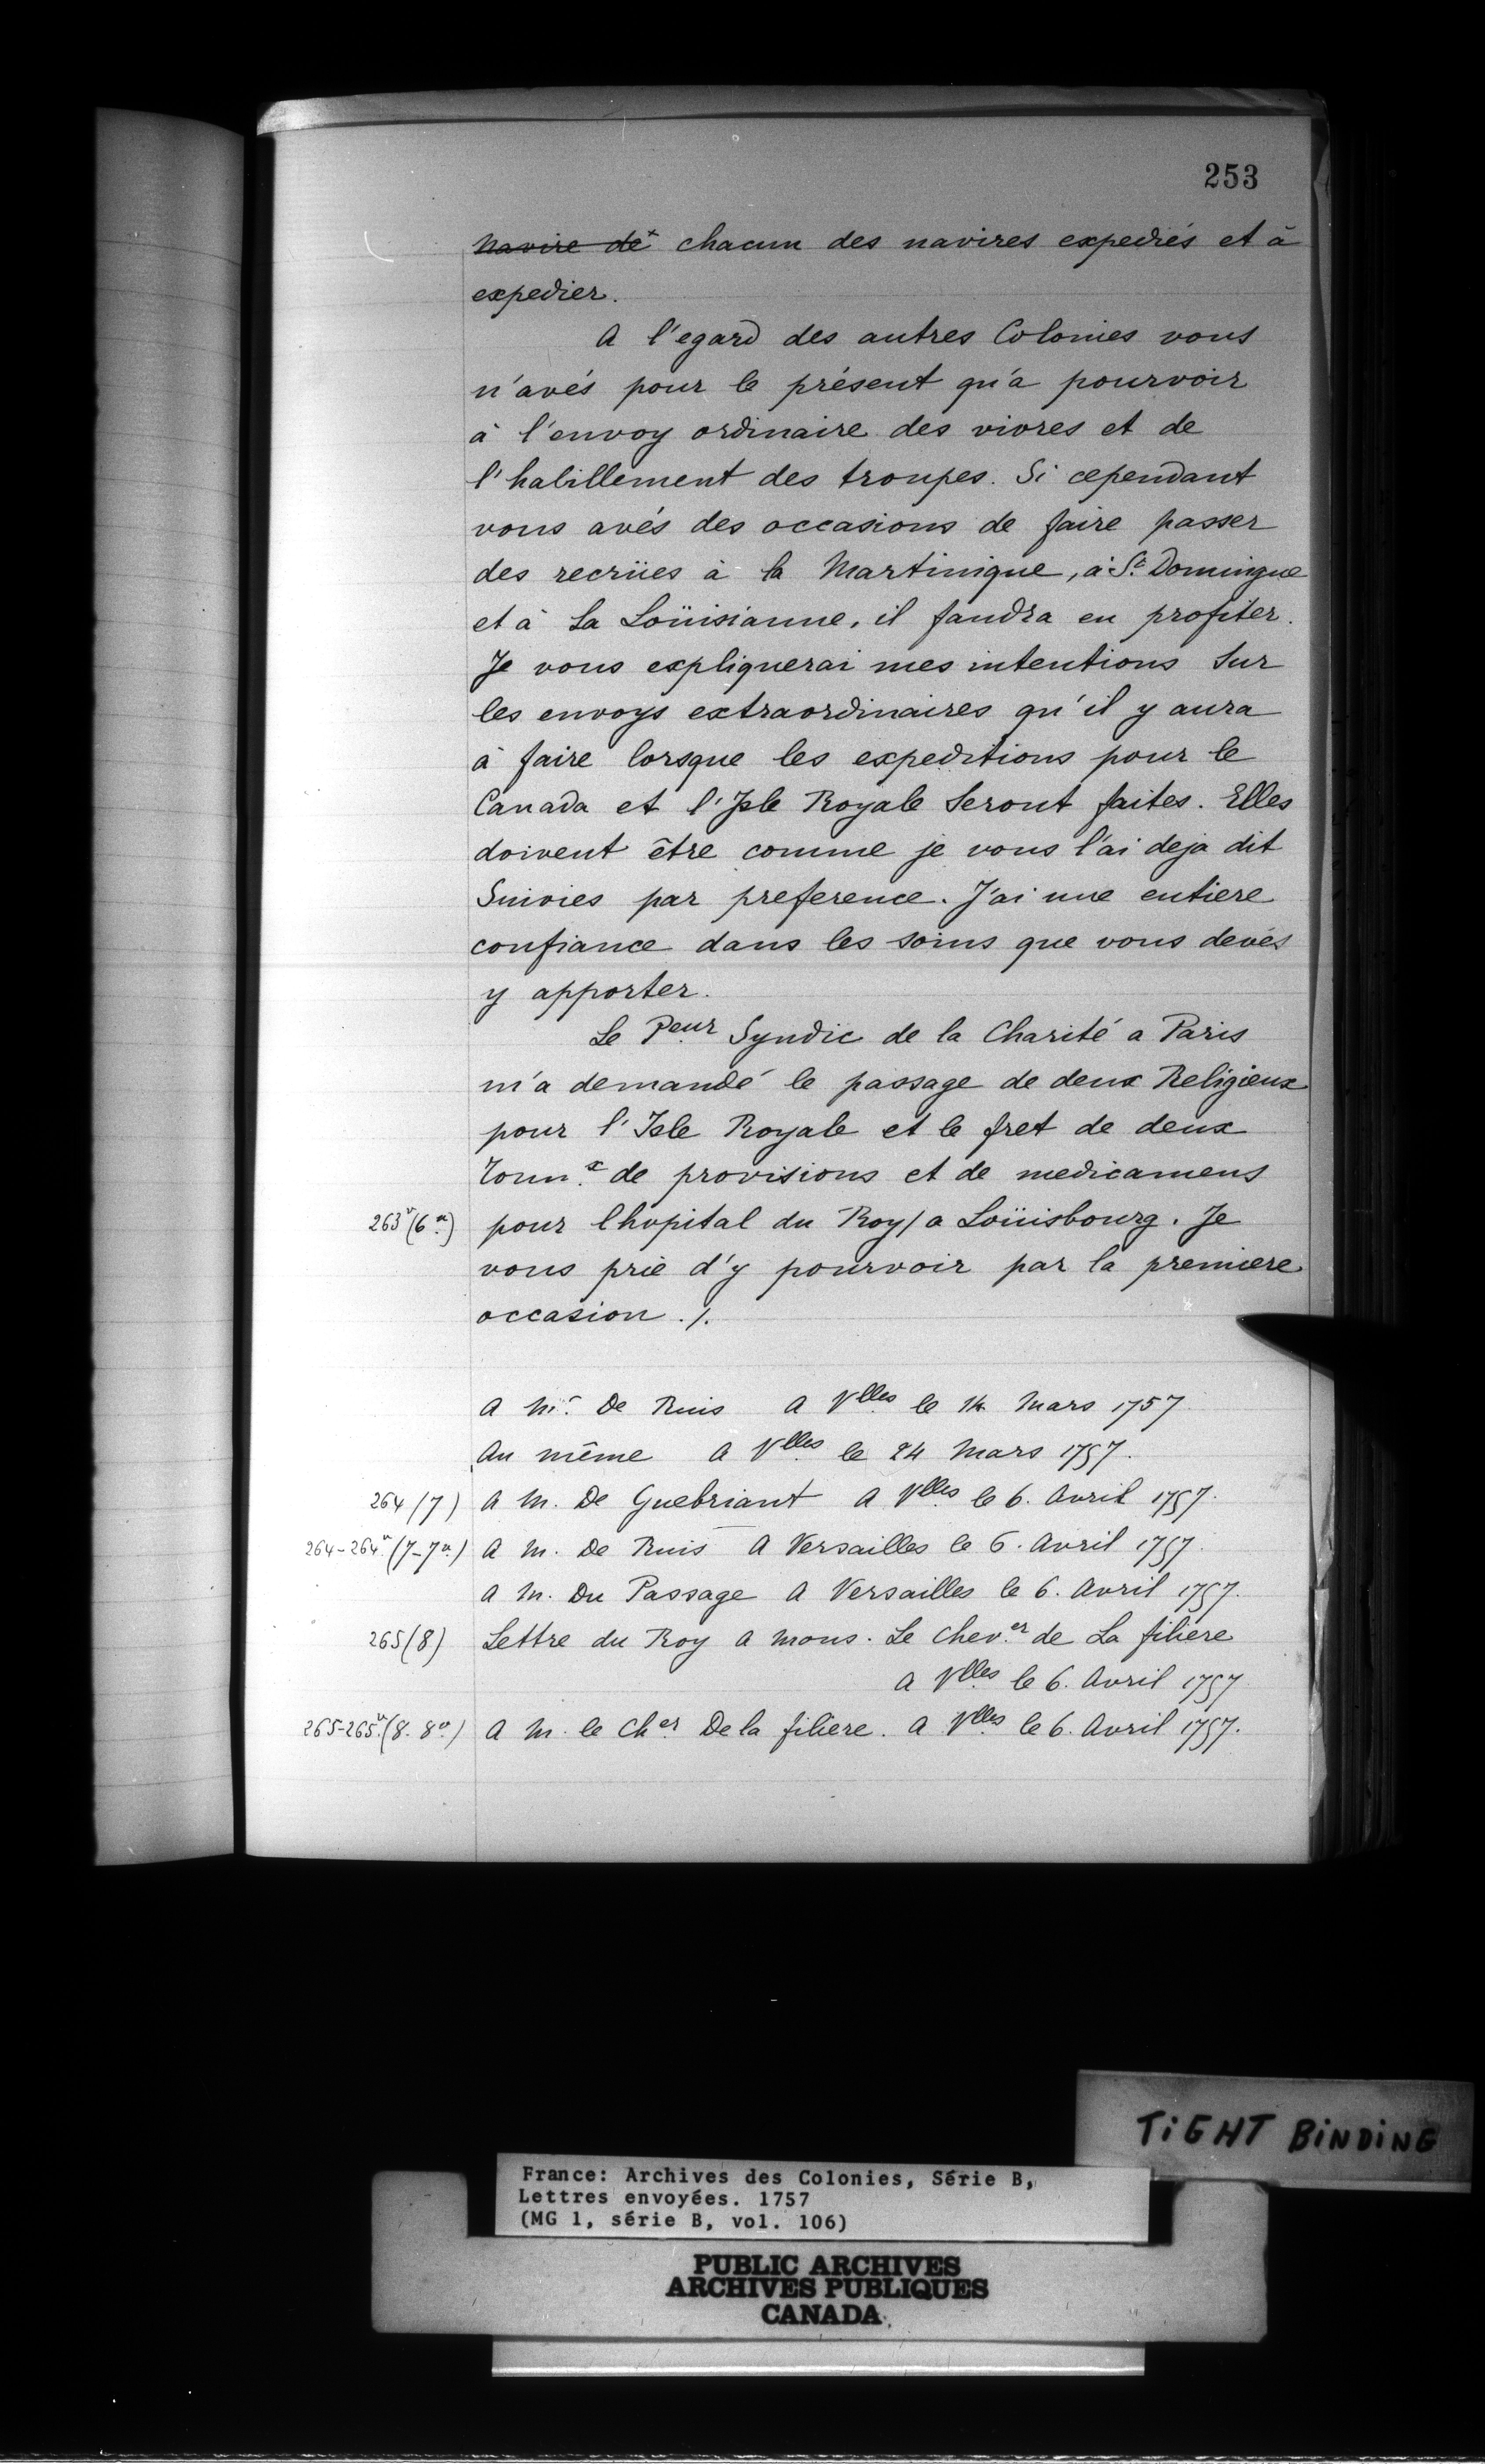 253
navire de x chacun des navires expediés et à
expedier.
A l'egard des autres Colonies vous
n'avés pour le présent qu'a pourvoir
à l'envoy ordinaire des vivres et de
l'habillement des troupes. Si cependant
vous avés des occasions de faire passer
des recrües à la Martinique, à St. Domingue
et à La Loüisianne, il faudra en profiter.
Je vous expliquerai mes intentions sur
les envoys extraordinaires qu'il y aura
à faire lorsque les expeditions pour le
Canada et l'Isle Royale seront faites. Elles
doivent être comme je vous l'ai deja dit
Suivies par preference. J'ai une entiere
confiance dans les soins que vous devés
y apporter.
Le P.eur Syndic de la Charité a Paris
m'a demandé le passage de deux Religieux
pour l'Isle Royale et le fret de deux
Tonn.x de provisions et de medicamens
263v (6v.) pour lhopital du Roy/a Loüisbourg. Je
vous prie d'y pourvoir par la premiere
occasion ./.
A Mr. De Ruis A Vlles le 14 Mars 1757
Au même A Vlles le 24 Mars 1757.
264 (7) A M. De Guebriant A Vlles le 6. Avril 1757.
264-264v. (7-7v.) A M. De Ruis A Versailles le 6. Avril 1757.
A M. Du Passage A Versailles le 6. Avril 1757.
265 (8) Lettre du Roy a Mons. Le Chev.er de La filiere
A Vlles le 6. Avril 1757
265-265v. (8. 8v.) A M. le Ch.er De la filiere. A Vlles le 6. Avril 1757.
TIGHT BINDING
France: Archives des Colonies, Série B,
Lettres envoyées. 1757
(MG 1, série B, vol. 106)
PUBLIC ARCHIVES
ARCHIVES PUBLIQUES
CANADA